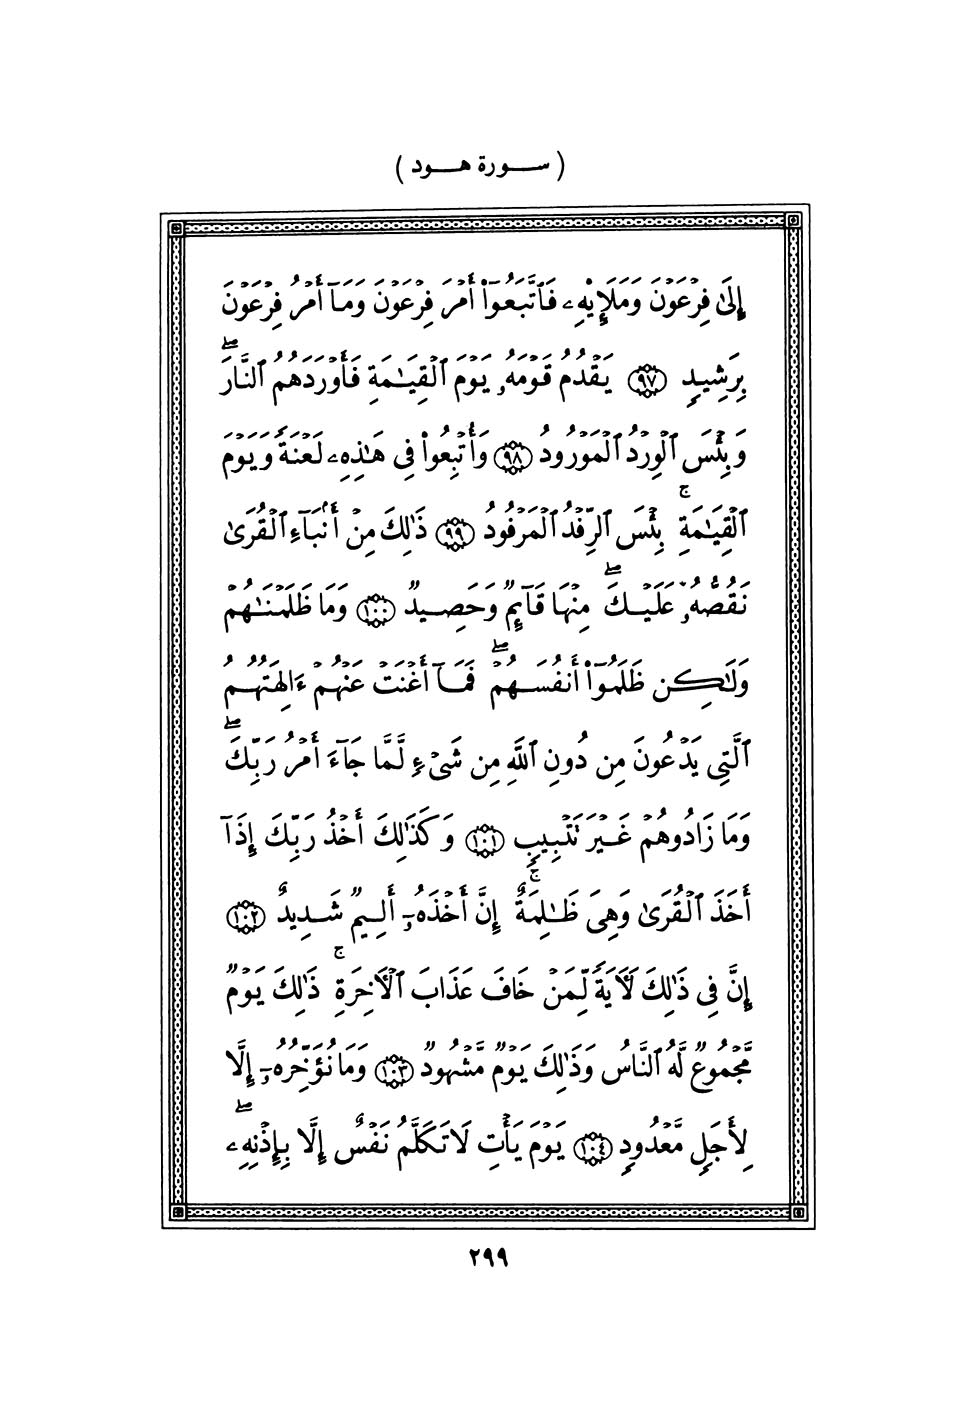 ( ســورة هــود )
إِلَىٰ فِرْعَوْنَ وَمَلَإِيْهِۦ فَٱتَّبَعُوٓا۟ أَمْرَ فِرْعَوْنَ وَمَآ أَمْرُ فِرْعَوْنَ
بِرَشِيدٍ ﴿٩٧﴾ يَقْدُمُ قَوْمَهُۥ يَوْمَ ٱلْقِيَـٰمَةِ فَأَوْرَدَهُمُ ٱلنَّارَ ۖ
وَبِئْسَ ٱلْوِرْدُ ٱلْمَوْرُودُ ﴿٩٨﴾ وَأُتْبِعُوا۟ فِى هَـٰذِهِۦ لَعْنَةً وَيَوْمَ
ٱلْقِيَـٰمَةِ ۚ بِئْسَ ٱلرِّفْدُ ٱلْمَرْفُودُ ﴿٩٩﴾ ذَٰلِكَ مِنْ أَنۢبَآءِ ٱلْقُرَىٰ
نَقُصُّهُۥ عَلَيْكَ ۖ مِنْهَا قَآئِمٌ وَحَصِيدٌ ﴿١٠٠﴾ وَمَا ظَلَمْنَـٰهُمْ
وَلَـٰكِن ظَلَمُوٓا۟ أَنفُسَهُمْ ۖ فَمَآ أَغْنَتْ عَنْهُمْ ءَالِهَتُهُمُ
ٱلَّتِى يَدْعُونَ مِن دُونِ ٱللَّهِ مِن شَىْءٍ لَّمَّا جَآءَ أَمْرُ رَبِّكَ ۖ
وَمَا زَادُوهُمْ غَيْرَ تَتْبِيبٍ ﴿١٠١﴾ وَكَذَٰلِكَ أَخْذُ رَبِّكَ إِذَآ
أَخَذَ ٱلْقُرَىٰ وَهِىَ ظَـٰلِمَةٌ ۚ إِنَّ أَخْذَهُۥٓ أَلِيمٌ شَدِيدٌ ﴿١٠٢﴾
إِنَّ فِى ذَٰلِكَ لَـَٔايَةً لِّمَنْ خَافَ عَذَابَ ٱلْـَٔاخِرَةِ ۚ ذَٰلِكَ يَوْمٌ
مَّجْمُوعٌ لَّهُ ٱلنَّاسُ وَذَٰلِكَ يَوْمٌ مَّشْهُودٌ ﴿١٠٣﴾ وَمَا نُؤَخِّرُهُۥٓ إِلَّا
لِأَجَلٍ مَّعْدُودٍ ﴿١٠٤﴾ يَوْمَ يَأْتِ لَا تَكَلَّمُ نَفْسٌ إِلَّا بِإِذْنِهِۦ ۚ
٢٩٩